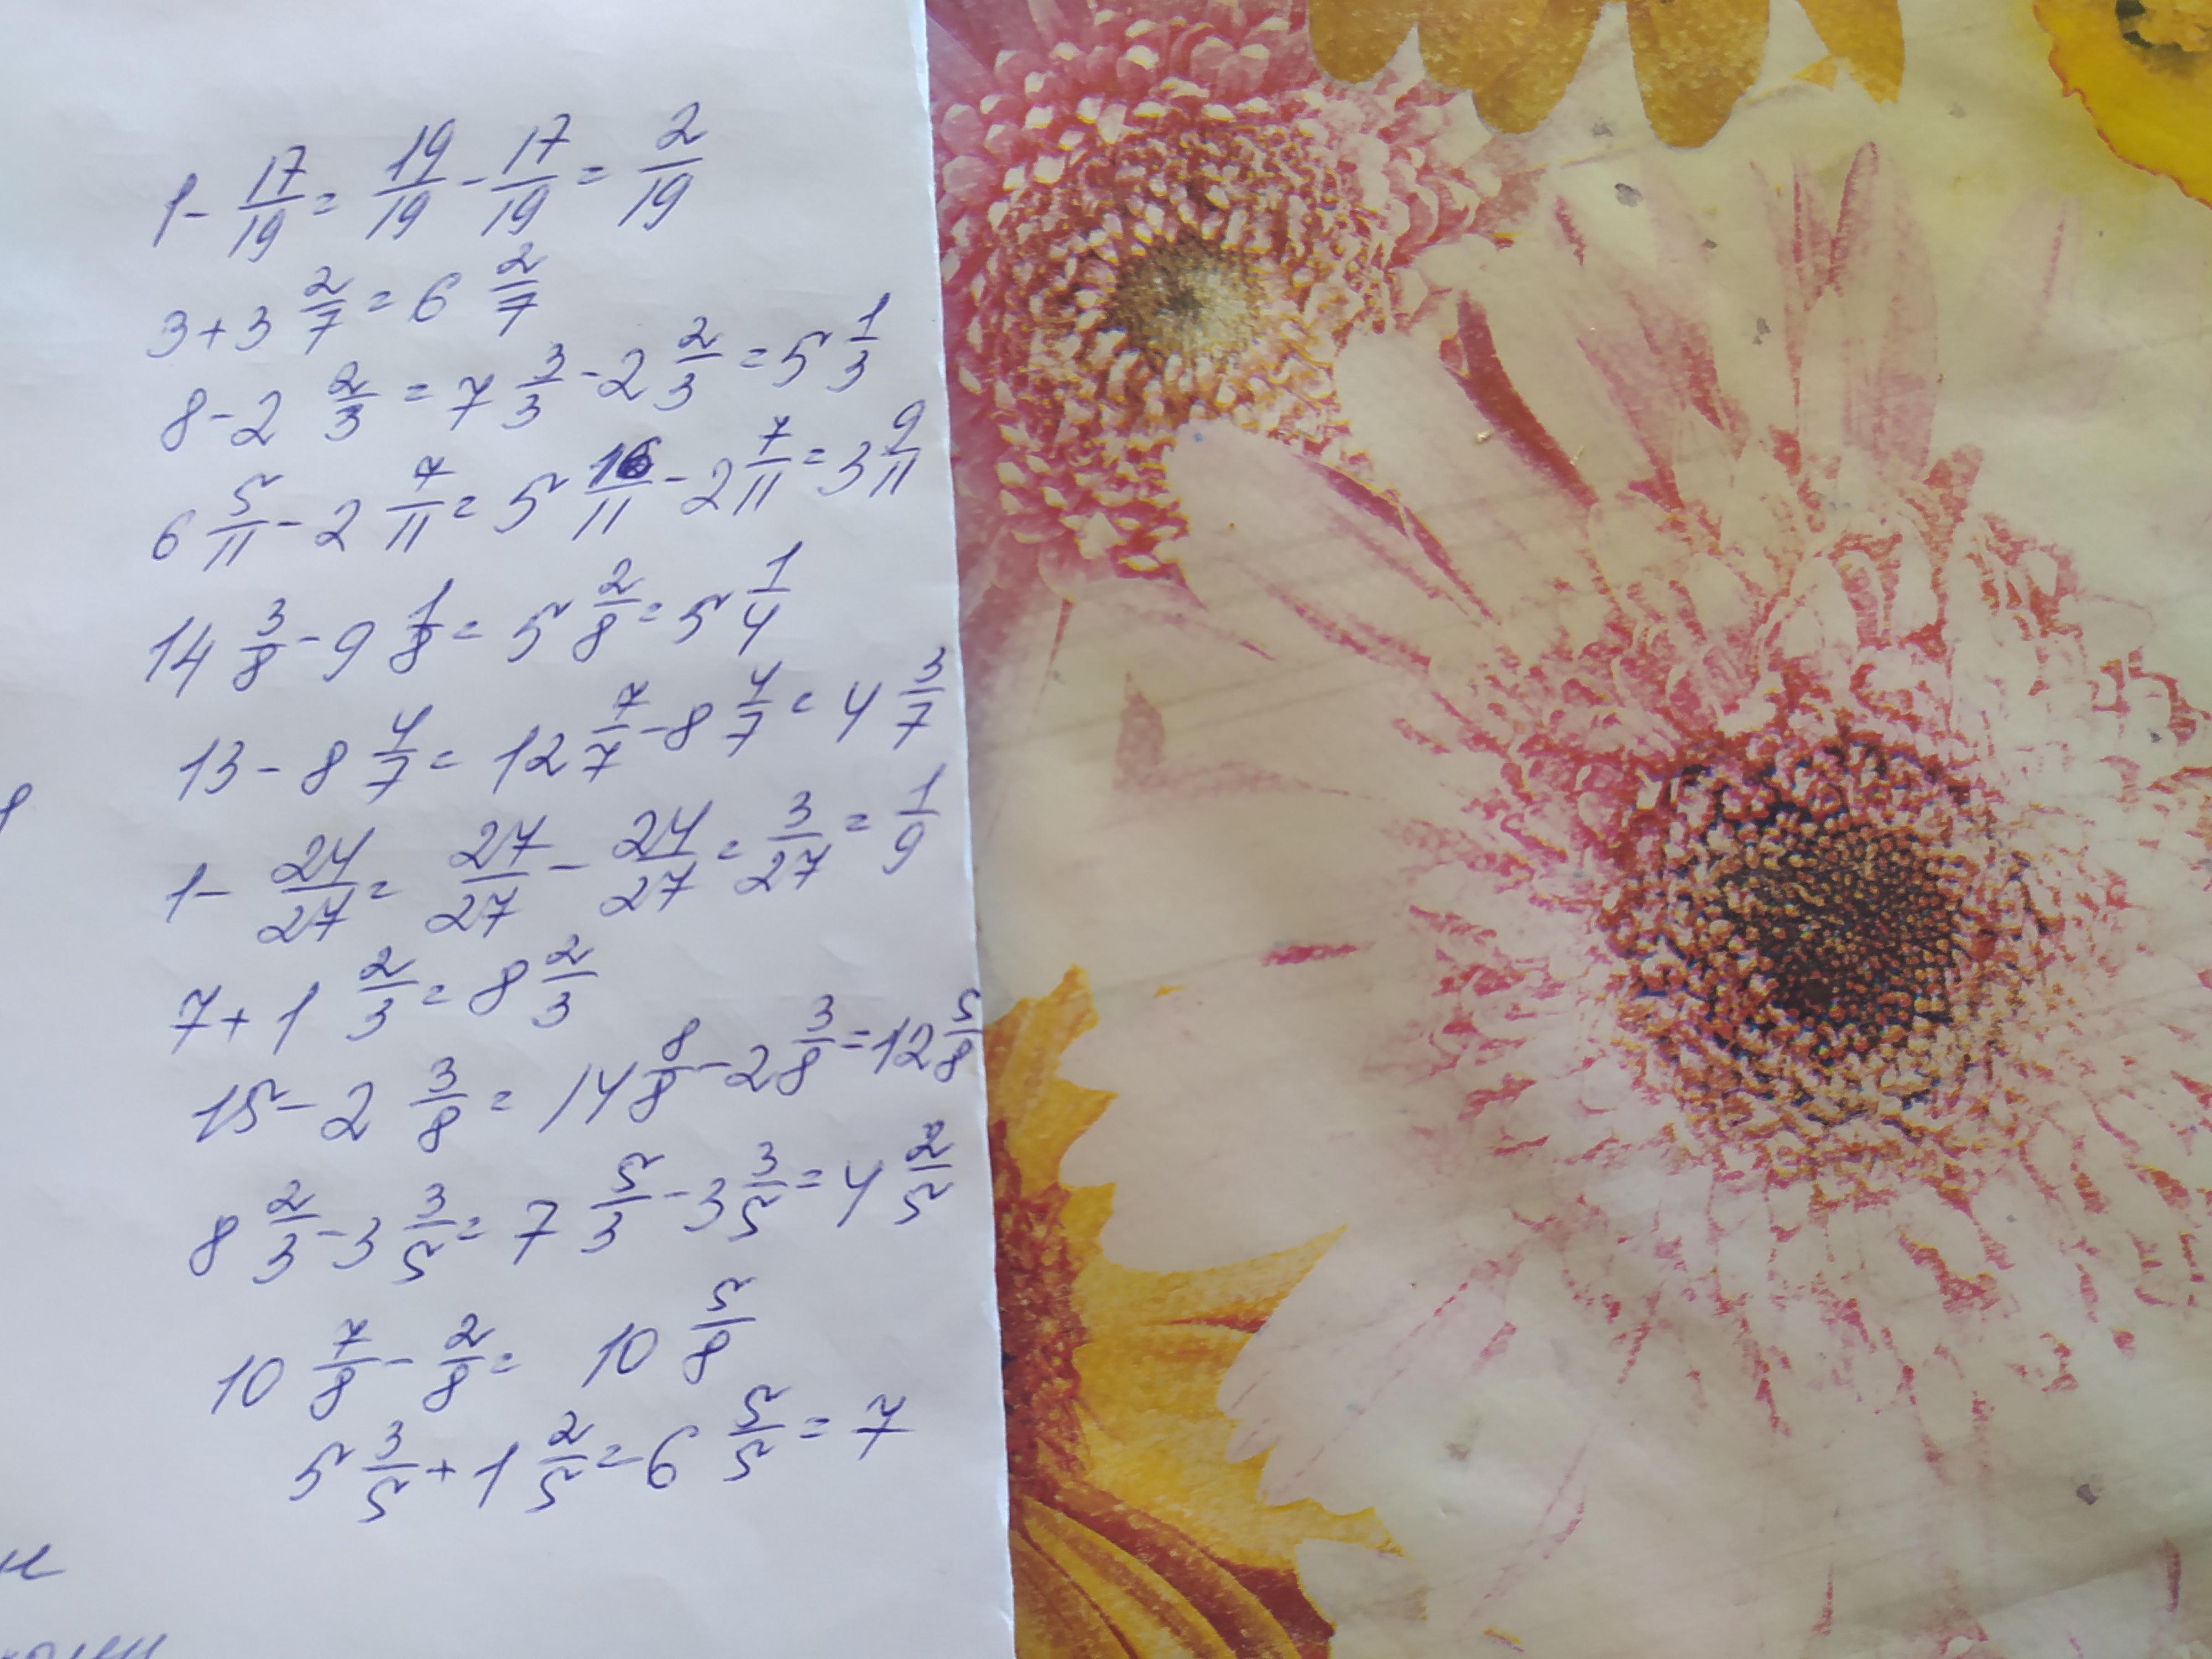 1 - 17/19 = 19/19 - 17/19 = 2/19
3 + 3 2/7 = 6 2/7
8 - 2 2/3 = 7 3/3 - 2 2/3 = 5 1/3
6 5/11 - 2 7/11 = 5 16/11 - 2 7/11 = 3 9/11
14 3/8 - 9 1/8 = 5 2/8 = 5 1/4
13 - 8 4/7 = 12 7/7 - 8 4/7 = 4 3/7
1 - 24/27 = 27/27 - 24/27 = 3/27 = 1/9
7 + 1 2/3 = 8 2/3
15 - 2 3/8 = 14 8/8 - 2 3/8 = 12 5/8
8 2/3 - 3 3/5 = 7 5/3 - 3 3/5 = 4 2/5
10 7/8 - 2/8 = 10 5/8
5 3/5 + 1 2/5 = 6 5/5 = 7